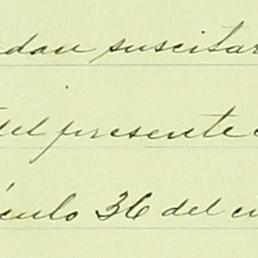 edan suscitar
del presente
ículo 36 del